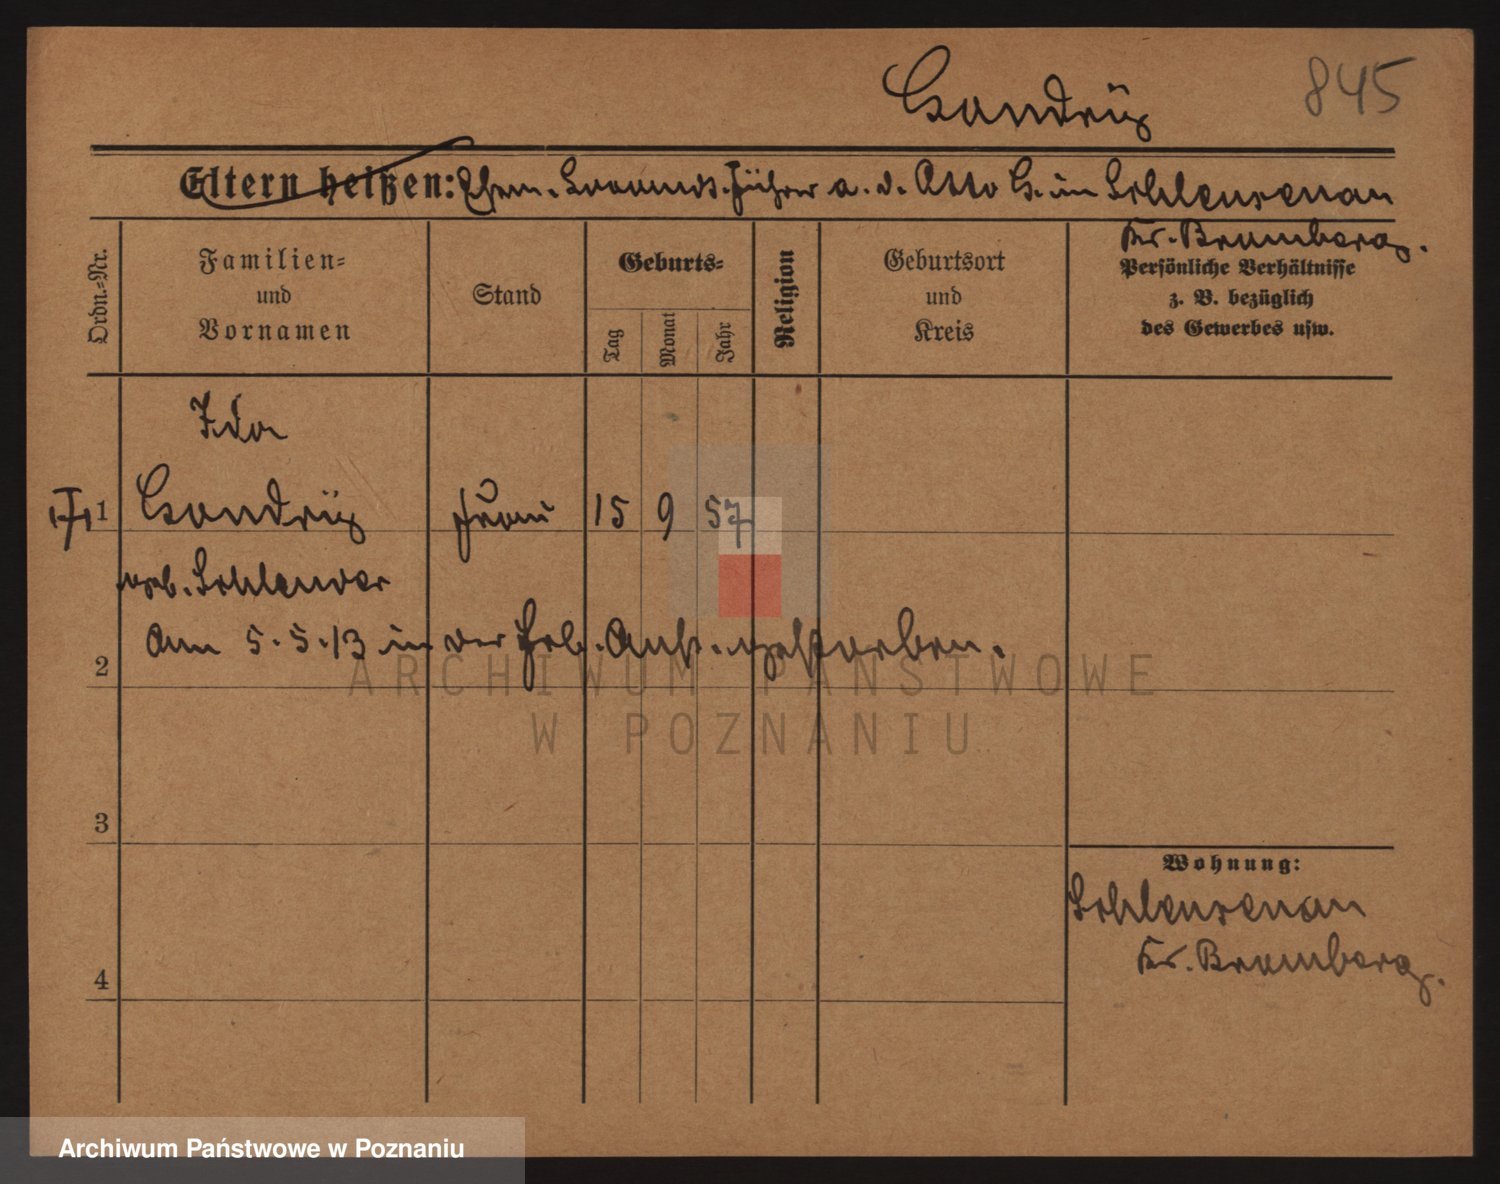 845
Eltern heißen: Ehem. a. d. Otto G. in Schleusenau
Kr. Bromberg.
Ordn.-Nr.
Familien-
und
Vornamen
Stand
Geburts-
Tag
Monat
Jahr
Religion
Geburtsort
und
Kreis
Persönliche Verhältnisse
z. B. bezüglich
des Gewerbes usw.
Ida
1 Frau 15 9 57
geb.
Am 5.5.13 in der Heb. Anst. gestorben.
2
3
4
Wohnung:
Schleusenau
Kr. Bromberg.
ARCHIWUM PAŃSTWOWE
W POZNANIU
Archiwum Państwowe w Poznaniu